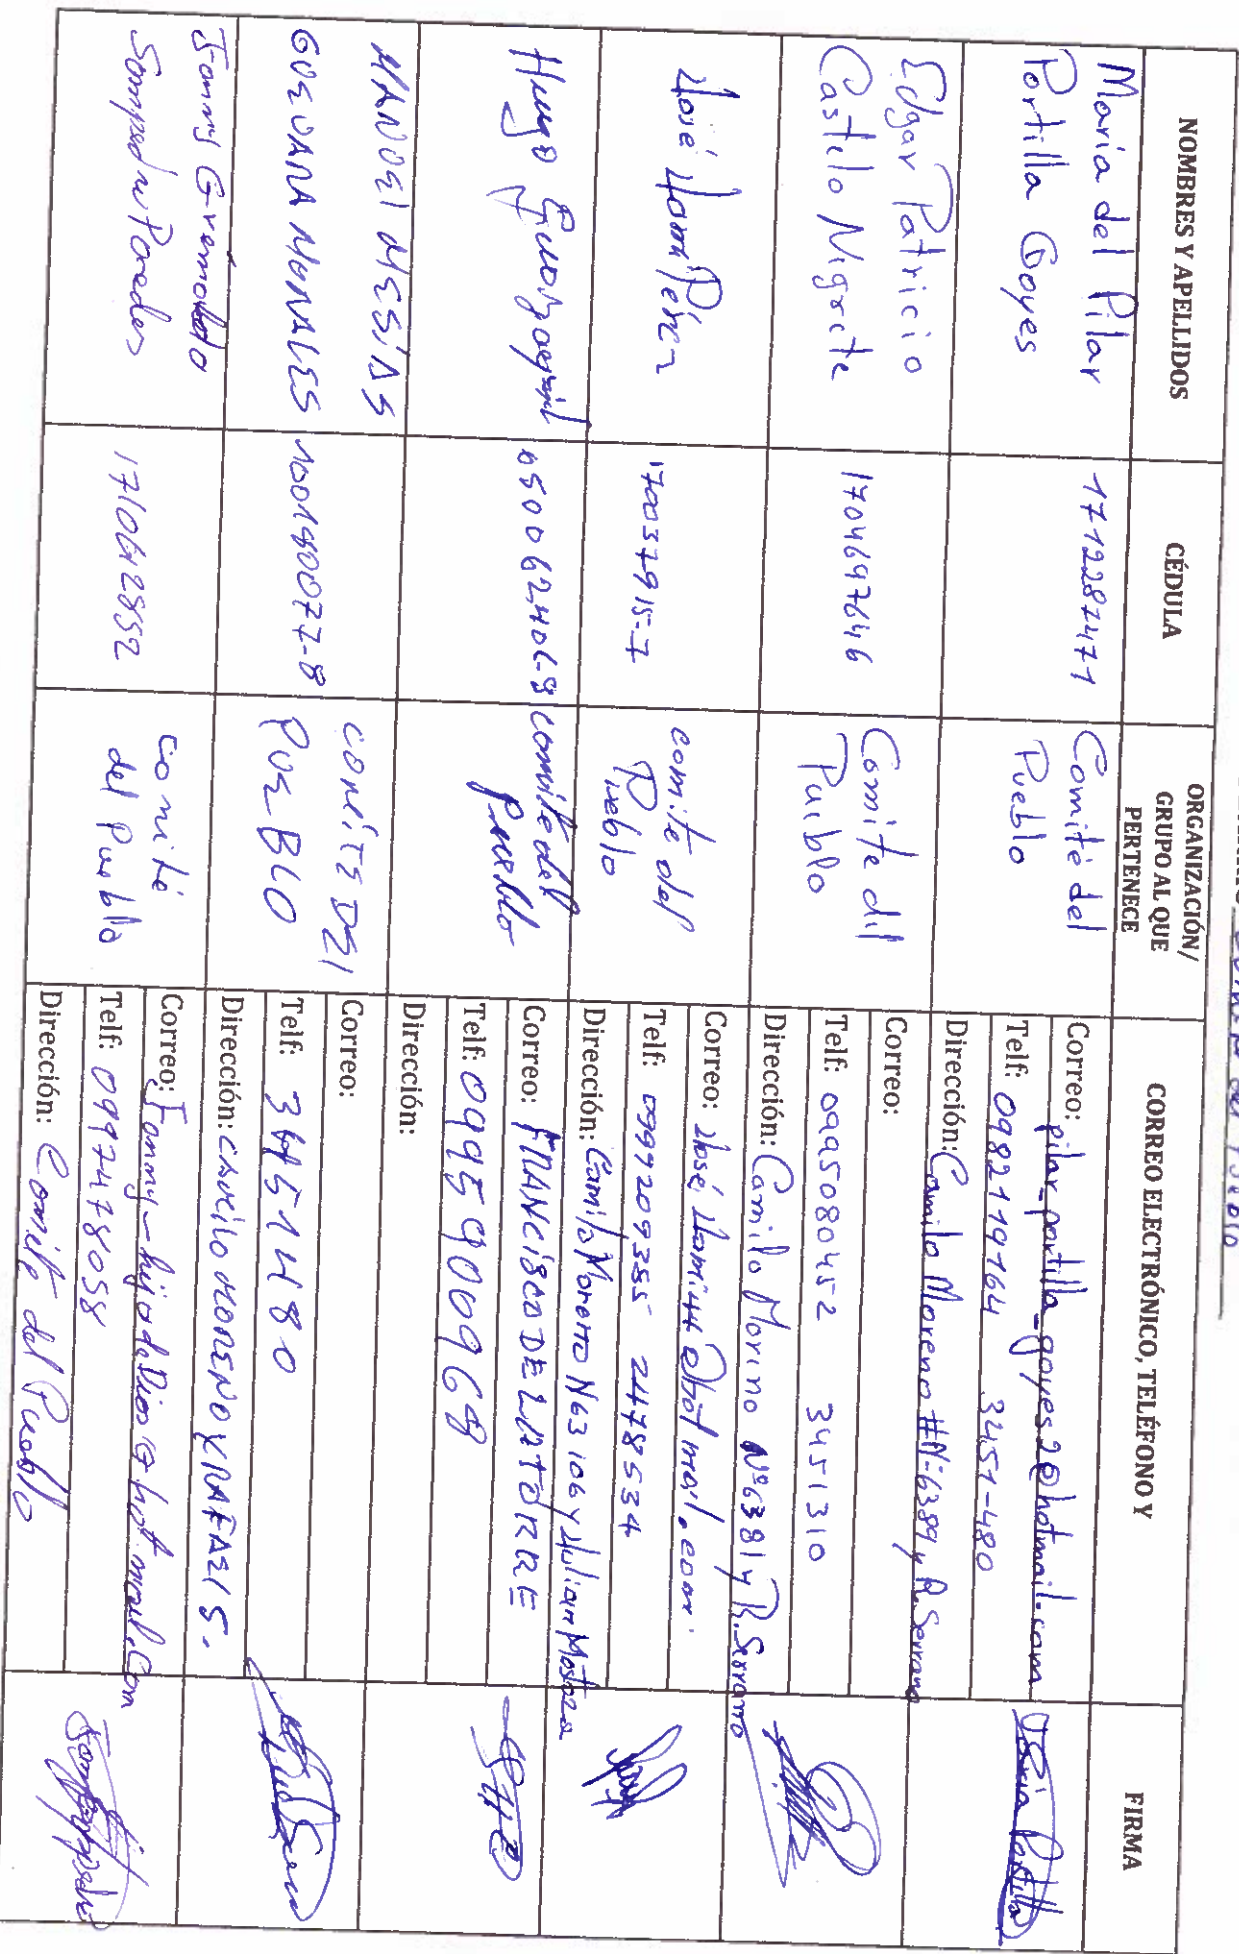 Comité del Pueblo
NOMBRES Y APELLIDOS
CÉDULA
ORGANIZACIÓN/
GRUPO AL QUE
PERTENECE
CORREO ELECTRÓNICO, TELÉFONO Y
FIRMA
María del Pilar
Portilla Goyes
1712287471
Comité del
Pueblo
Correo: pilar_portilla_goyes2@hotmail.com
Telf: 0982119764 3451-480
Dirección: Camilo Moreno #N-6389 y R. Serrano
María Portilla
Edgar Patricio
Castelo Nigrete
1704697646
Comite del
Pueblo
Correo:
Telf: 0995080452 3451310
Dirección: Camilo Morino Nº6381 y R. Serrano
José Llami Pérez
170037915-7
comite del
Pueblo
Correo: José Llami44@hotmail.com.
Telf: 0999209355 2478534
Dirección: Camilo Moreno N63 106 y Julian Mostoza
Hugo
050062406-8
comite del
Pueblo
Correo: FRANCISCO DE LATORRE
Telf: 0995900968
Dirección:
MANUEL MESÍAS
GUEVARA MORALES
100190077-8
COMITE DEL
PUEBLO
Correo:
Telf: 3451480
Dirección: CAMILO MORENO Y RAFAEL S.
Fanny
Sampedro Paredes
1710612852
comité
del Pueblo
Correo: Fanny_hijadeDios@hotmail.com
Telf: 0997478058
Dirección: Comite del Pueblo